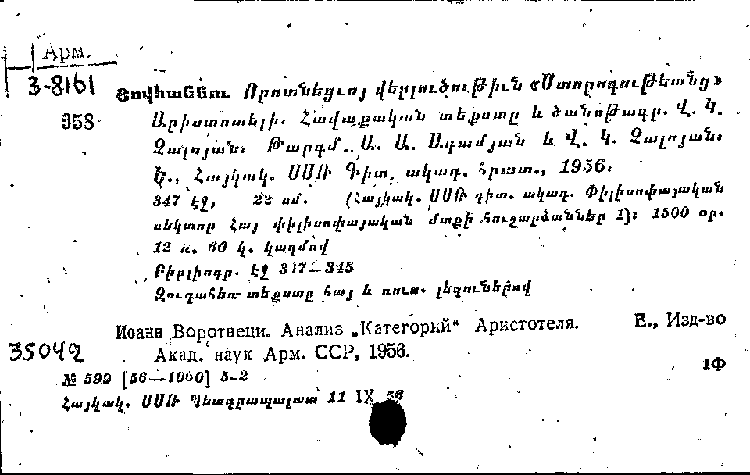 Арм.
3-8161
358
Յովհաննու Որոտնեցւոյ վերլուծութիւն «Ստորոգութեանց»
Արիստոտէլի. Հավաքական տեքստը և ծանոթագր. Վ. Կ.
Չալոյան։ Թարգմ. Ա. Ա. Ադամյան և Վ. Կ. Չալոյան։
Ե., Հայկակ. ՍՍՌ Գիտ. ակադ. հրատ., 1956։
347 էջ, 22 սմ. (Հայկակ. ՍՍՌ գիտ. ակադ. Փիլիսոփայական
սեկտոր Հայ փիլիսոփայական մտքի հուշարձաններ 1)։ 1500 օր.
12 ռ. 60 կ. կազմով
Բիբլիոգր. էջ 317—345
Զուգահեռ տեքստը հայ և ռուս. լեզուներով
Иоанн Воротнеци. Анализ „Категорий“ Аристотеля. Е., Изд-во
35042
Акад. наук Арм. ССР, 1956.
1Ф
№ 599 [56—1060] 5-2
Հայկակ. ՍՍՌ Պետգրապալատ 11 IX 56